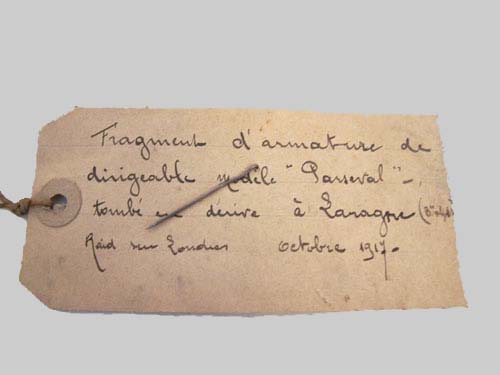 Fragment d'armature de
dirigeable modèle "Parseval" -
tombé en dérive à Laragne
Raid sur Londres octobre 1917 -